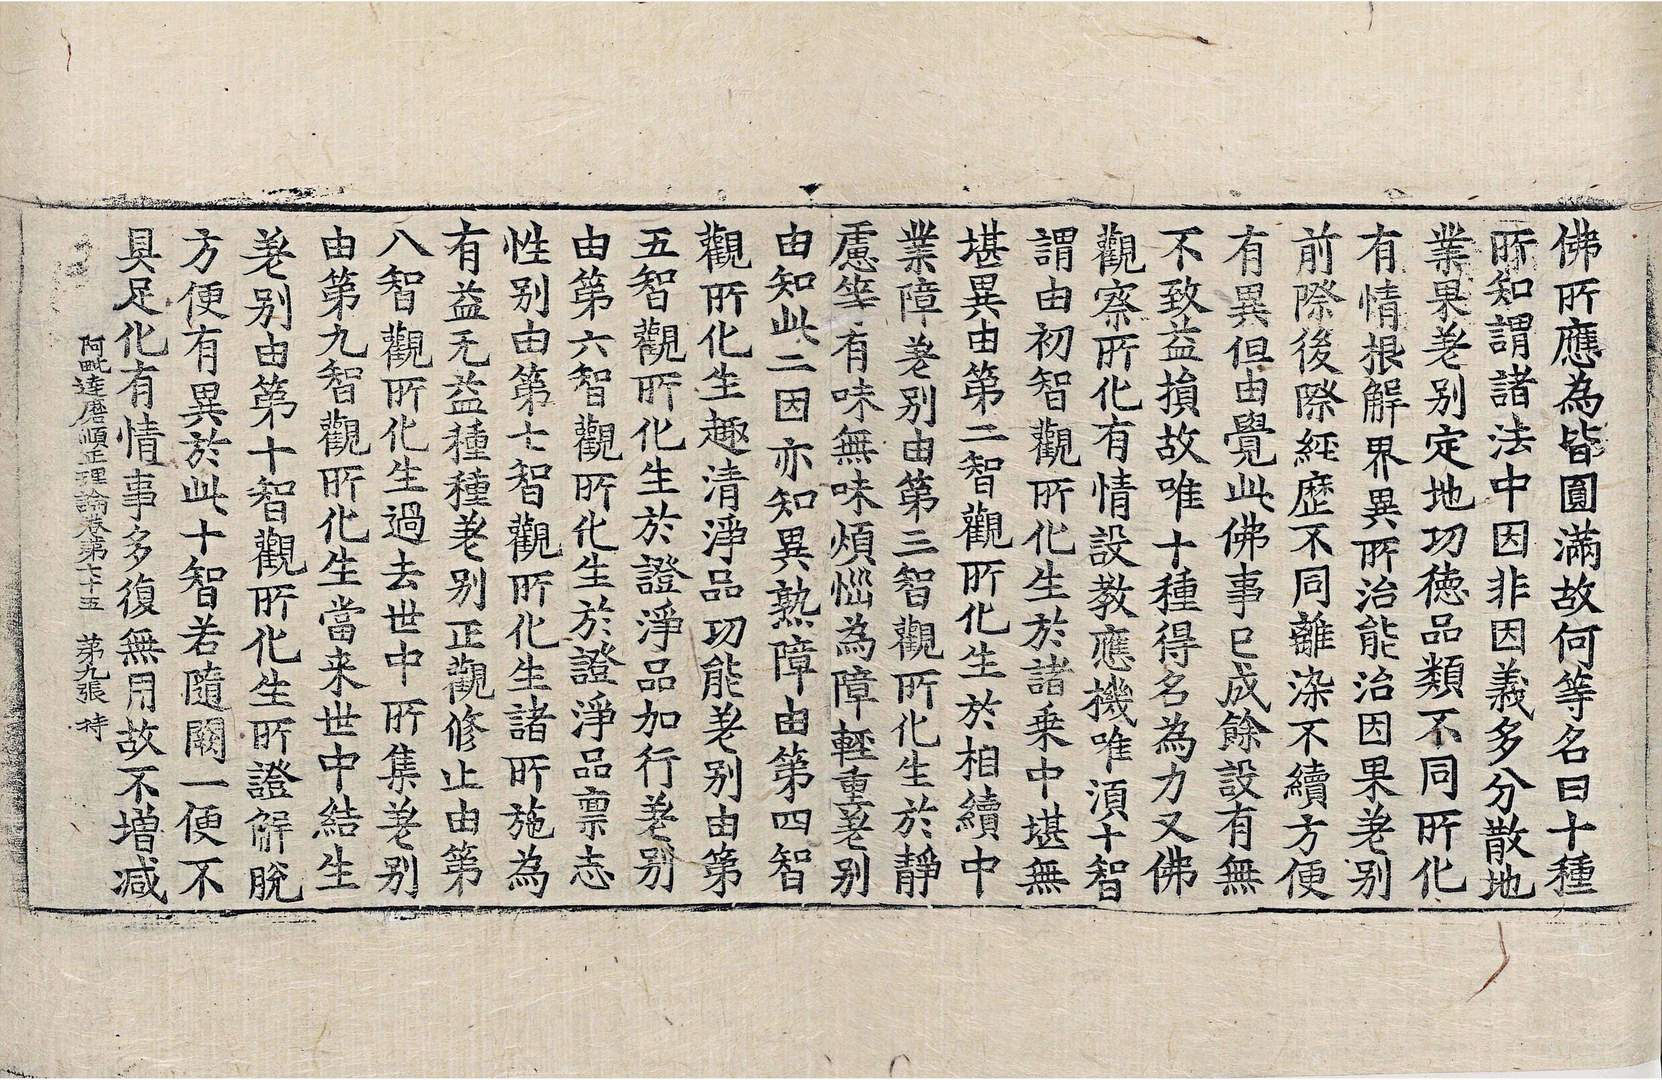 佛所應為皆圎滿故何等名曰十種
所知謂諸法中因非因義多分散地
業果差别定地功德品類不同所化
有情根解界異所治能治因果差别
前際後際經歷不同離染不續方便
有異但由覺此佛事已成餘設有無
不致益損故唯十種得名為力又佛
觀察所化有情設教應機唯須十智
謂由初智觀所化生於諸乗中堪無
堪異由第二智觀所化生於相續中
業障差别由第三智觀所化生於靜
慮等有味無味煩惱為障輕重差别
由知此二因亦知異熟障由第四智
觀所化生趣清淨品功能差别由第
五智觀所化生於證淨品加行差别
由第六智觀所化生於證淨品禀志
性别由第七智觀所化生諸所施為
有益无益種種差别正觀修止由第
八智觀所化生過去世中所集差别
由第九智觀所化生當来世中結生
差别由第十智觀所化生所證解脫
方便有異於此十智若隨闕一便不
具足化有情事多復無用故不增减
阿毗達磨順正理論卷第七十五 第九張 持